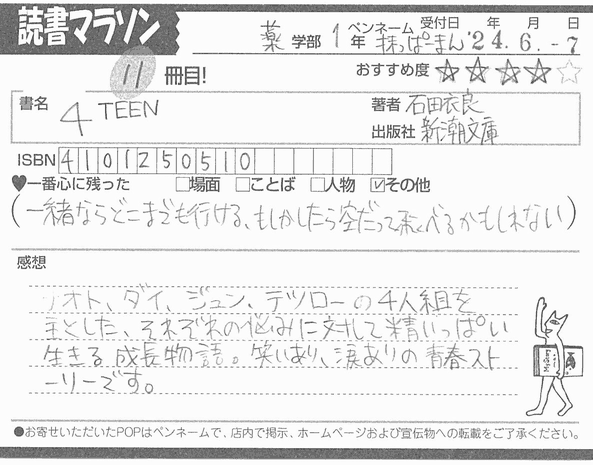 読書マラソン
薬 学部 1 年 ペンネーム 抹っぱーまん 受付日 年 月 日 '24.6.-7
11 冊目! おすすめ度 ★★★★☆
書名 4 TEEN
著者 石田衣良
出版社 新潮文庫
ISBN 4101250510
♥一番心に残った □場面 □ことば □人物 ☑その他
(一緒ならどこまでも行ける、もしかしたら空だって飛べるかもしれない)
感想
ナオト、ダイ、ジュン、テツローの4人組を
主とした、それぞれの悩みに対して精いっぱい
生きる成長物語。笑いあり、涙ありの青春スト
ーリーです。
●お寄せいただいたPOPはペンネームで、店内で掲示、ホームページおよび宣伝物への転載をご了承ください。